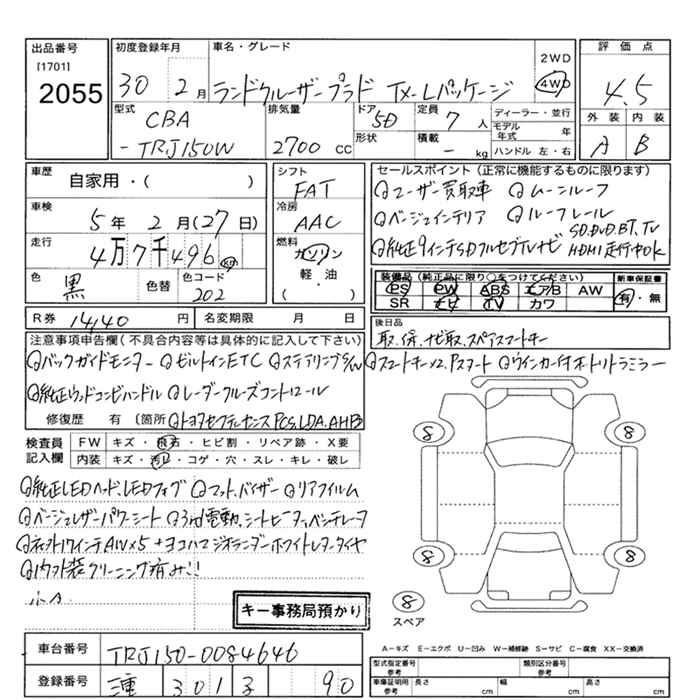 出品番号 初度登録年月 車名・グレード 2WD 4WD 評価点
[1701]
2055 30 2月 ランドクルーザープラド TX-Lパッケージ 4.5
型式 CBA -TRJ150W 排気量 2700 CC ドア 5D 形状 定員 7人 積載 - kg ディーラー・並行 モデル年式 年 ハンドル 左・右 外装 内装
A B
車歴 自家用・( ) シフト FAT セールスポイント(正常に機能するものに限ります)
車検 5年 2月(27日) 冷房 AAC
◎ユーザー買取車 ◎ムーンルーフ
◎ベージュインテリア ◎ルーフレール
走行 4万7千496 km 燃料 ガソリン 軽・油 ( )
◎純正9インチSDフルセグTVナビ SD.DVD.BT.TV HDMI走行中OK
色 黒 色替 色コード 202
装備品(純正品に限り○をつけてください) 新車保証書
PS PW ABS エアB AW 有・無
SR ナビ TV カワ
R券 14140円 名変期限 月 日
後日品
取.保.ナビ取.スペアスマートキー
注意事項申告欄(不具合内容等は具体的に記入して下さい)
◎バックガイドモニター ◎ビルトインETC ◎ステアリングS/W ◎スマートキー×2.Pスタート ◎ウインカー付オートリトラミラー
◎純正ウッドコンビハンドル ◎レーダークルーズコントロール
修復歴 有 (箇所 ◎トヨタセーフティセンス PCS.LDA.AHB
検査員記入欄 FW キズ・飛石・ヒビ割・リペア跡・X要
内装 キズ・汚れ・コゲ・穴・スレ・キレ・破レ
◎純正LEDヘッド.LEDフォグ ◎マット.バイザー ◎リアフィルム
◎ベージュレザーパワーシート ◎3rd電動.シートヒーター.ベンチレーフ
AW×5 +ヨコハマジオランダーホワイトレタータイヤ
◎内外装クリーニング済み!!
小A
8 8
8 8
8
スペア
キー事務局預かり
車台番号 TRJ150-0084646
登録番号 三重 301 90
A-キズ E-エクボ U-凹み W-補修跡 S-サビ C-腐食 XX-交換済
型式指定番号 参考 類別区分番号 参考
車庫証明用 参考 長さ cm 幅 cm 高さ cm